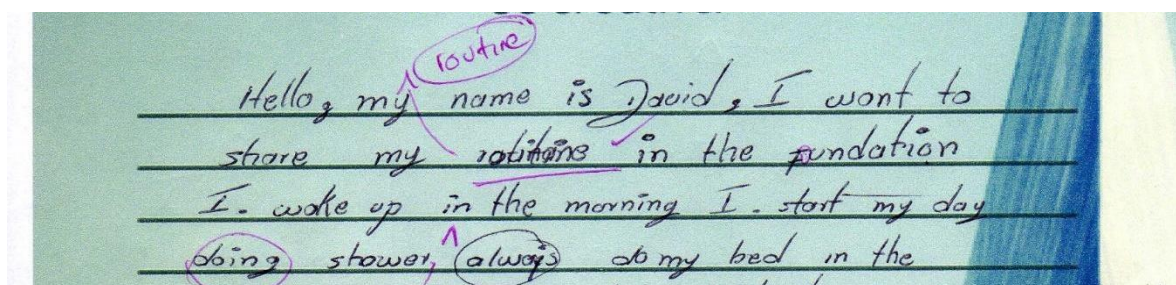 routine
Hello, my name is David, I want to
share my in the fundation
I. wake up in the morning I. start my day
doing shower, always do my bed in the